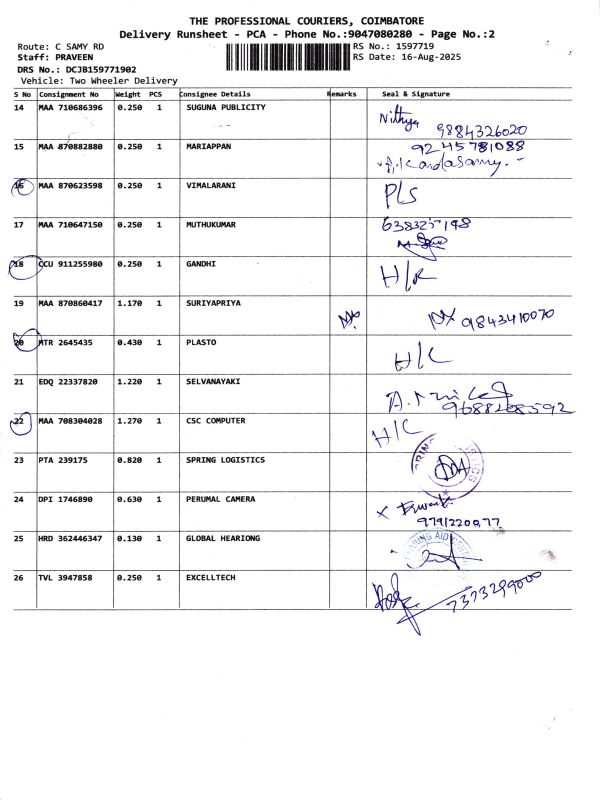 THE PROFESSIONAL COURIERS, COIMBATORE
Delivery Runsheet - PCA - Phone No.:9047080280 - Page No.:2
Route: C SAMY RD RS No.: 1597719
Staff: PRAVEEN RS Date: 16-Aug-2025
DRS No.: DCJB159771902
Vehicle: Two Wheeler Delivery
S No Consignment No Weight PCS Consignee Details Remarks Seal & Signature
14 MAA 710686396 0.250 1 SUGUNA PUBLICITY Nithya
9884326020
15 MAA 870882880 0.250 1 MARIAPPAN 9245781088
16 MAA 870623598 0.250 1 VIMALARANI P/S
17 MAA 710647150 0.250 1 MUTHUKUMAR
18 CCU 911255980 0.250 1 GANDHI H/R
19 MAA 870860417 1.170 1 SURIYAPRIYA 9843410070
20 MTR 2645435 0.430 1 PLASTO H/C
21 EDQ 22337820 1.220 1 SELVANAYAKI
9688268592
22 MAA 708304028 1.270 1 CSC COMPUTER H/C
23 PTA 239175 0.820 1 SPRING LOGISTICS
24 DPI 1746890 0.630 1 PERUMAL CAMERA
25 HRD 362446347 0.130 1 GLOBAL HEARIONG
26 TVL 3947858 0.250 1 EXCELLTECH
7373299000